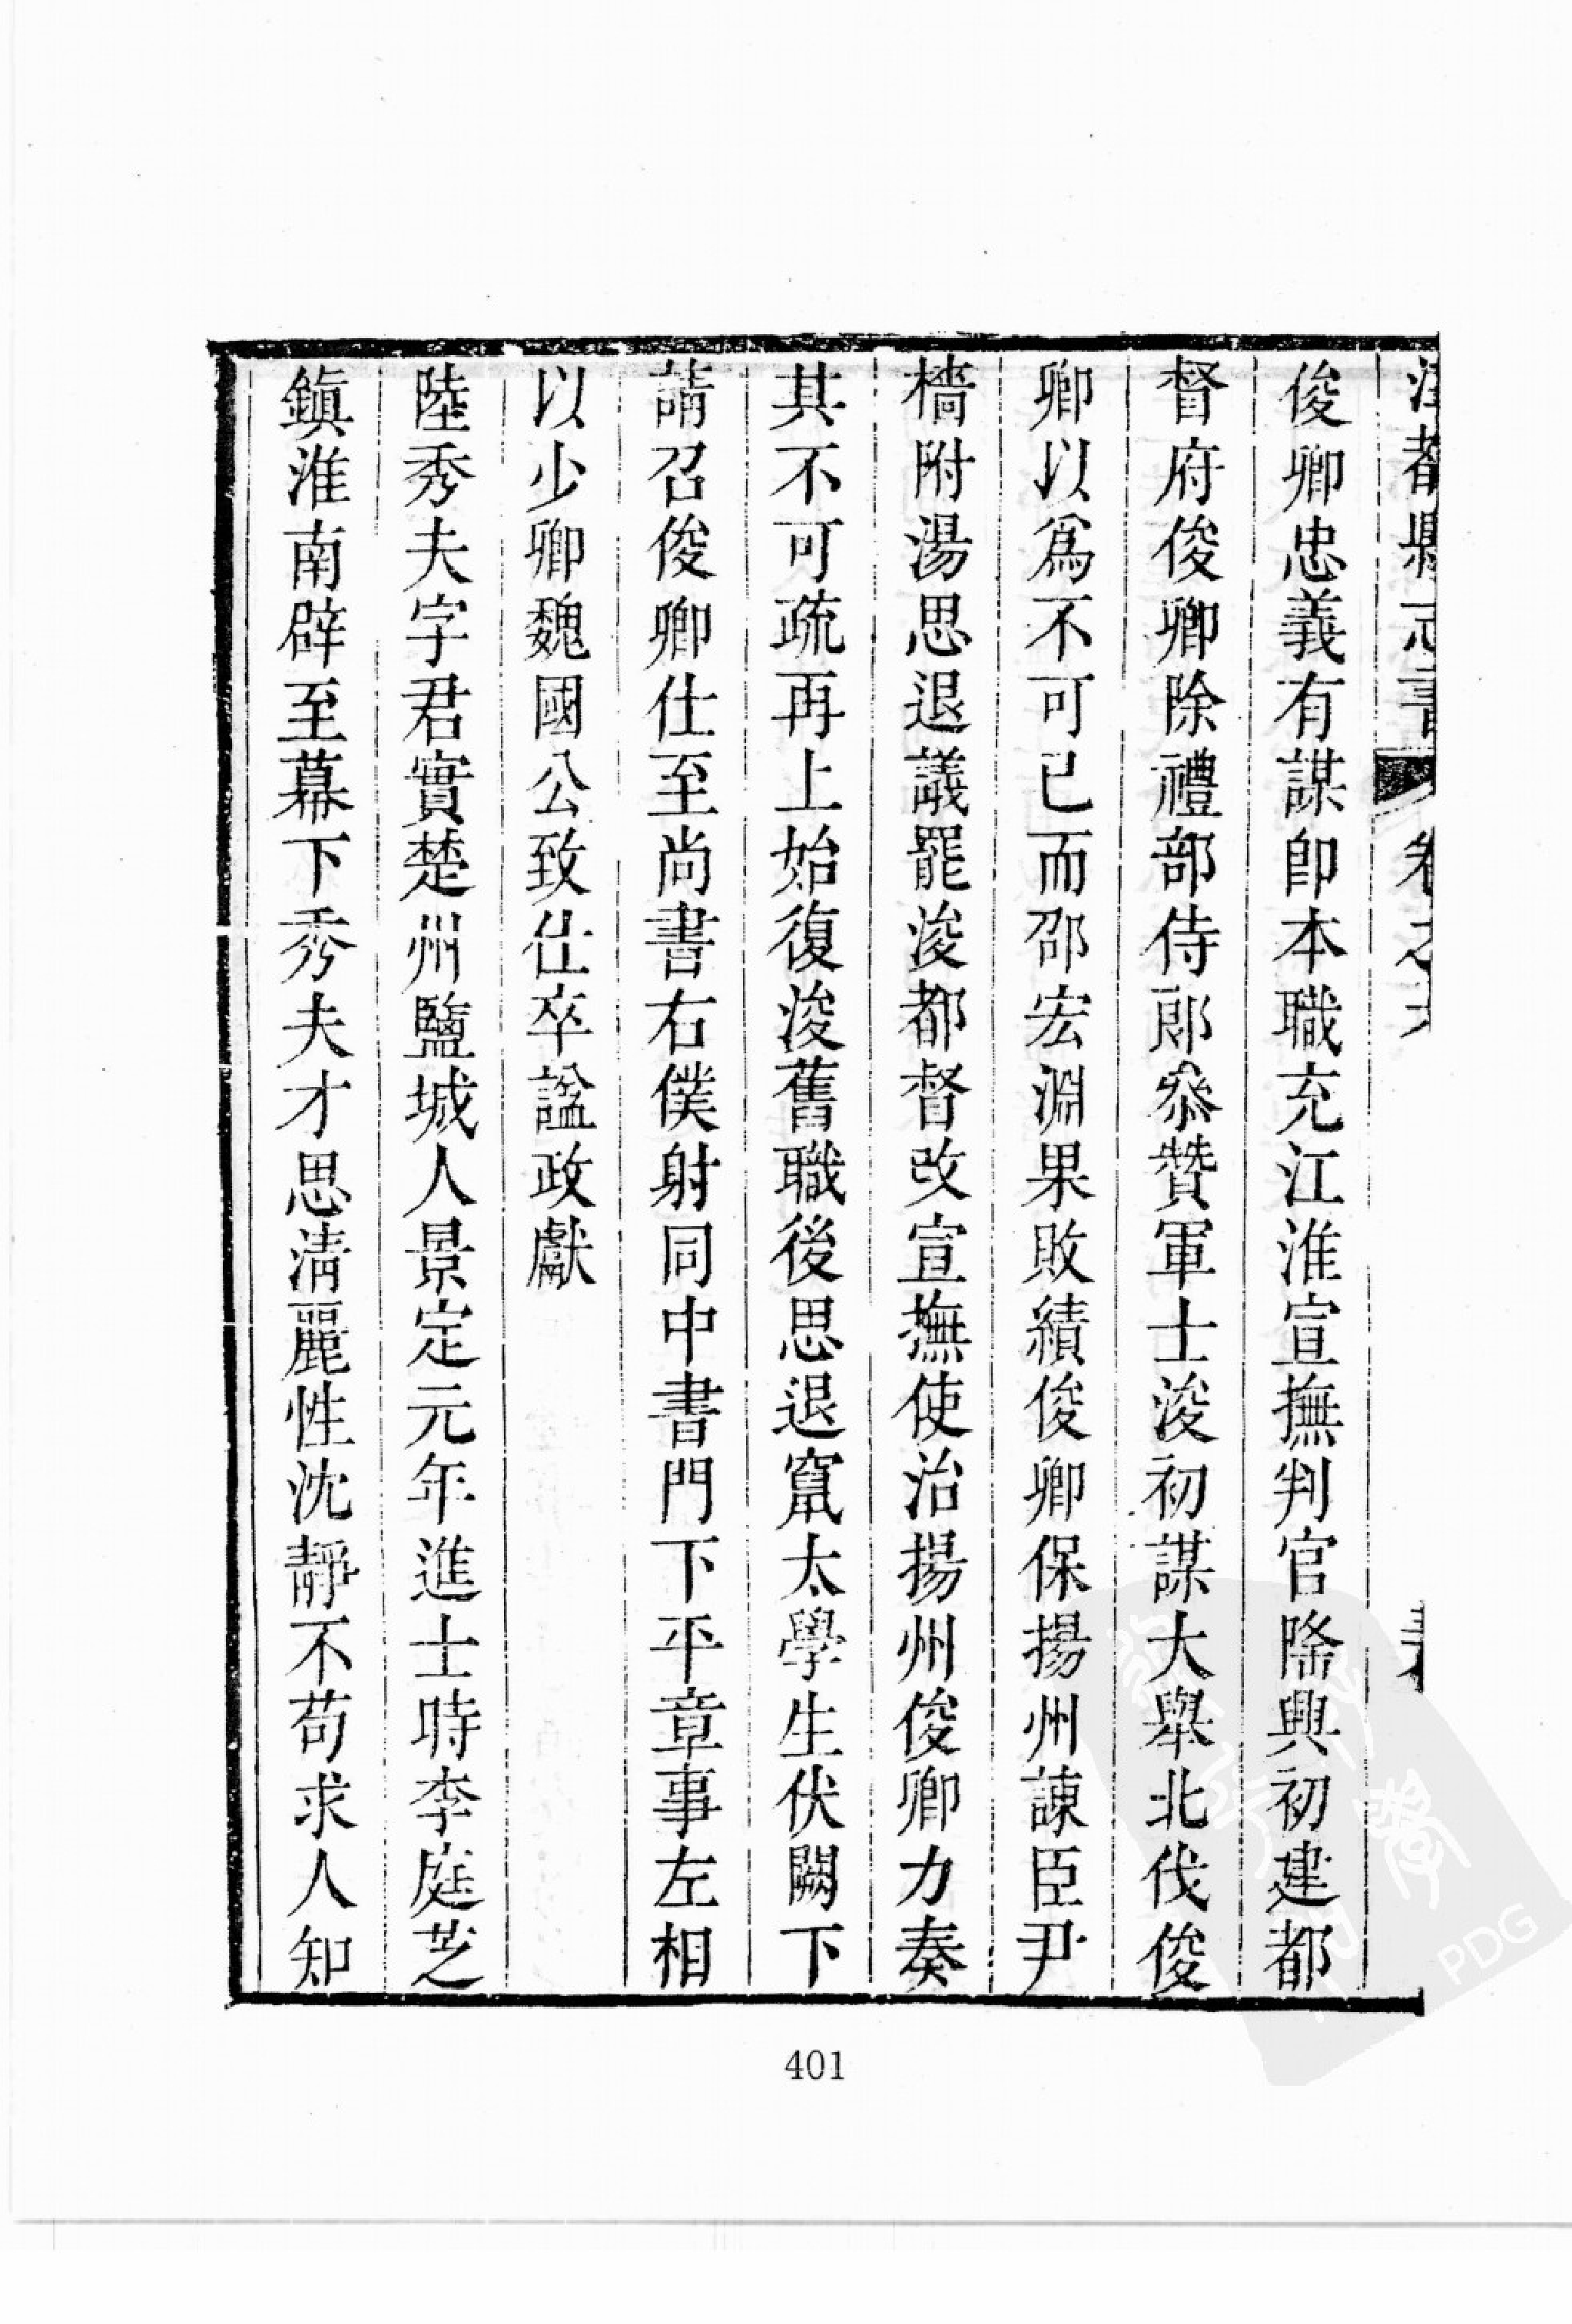 江都縣志書 卷之六
俊卿忠義有謀即本職充江淮宣撫判官隆興初建都
督府俊卿除禮部侍郎叅贊軍士浚初謀大舉北伐俊
卿以爲不可已而邵宏淵果敗績俊卿保揚州諫臣尹
檣附湯思退議罷浚都督改宣撫使治揚州俊卿力奏
其不可疏再上始復浚舊職後思退竄太學生伏闕下
請召俊卿仕至尚書右僕射同中書門下平章事左相
以少卿魏國公致仕卒諡政獻
陸秀夫字君實楚州鹽城人景定元年進士時李庭芝
鎮淮南辟至幕下秀夫才思清麗性沈靜不苟求人知
401
PDG